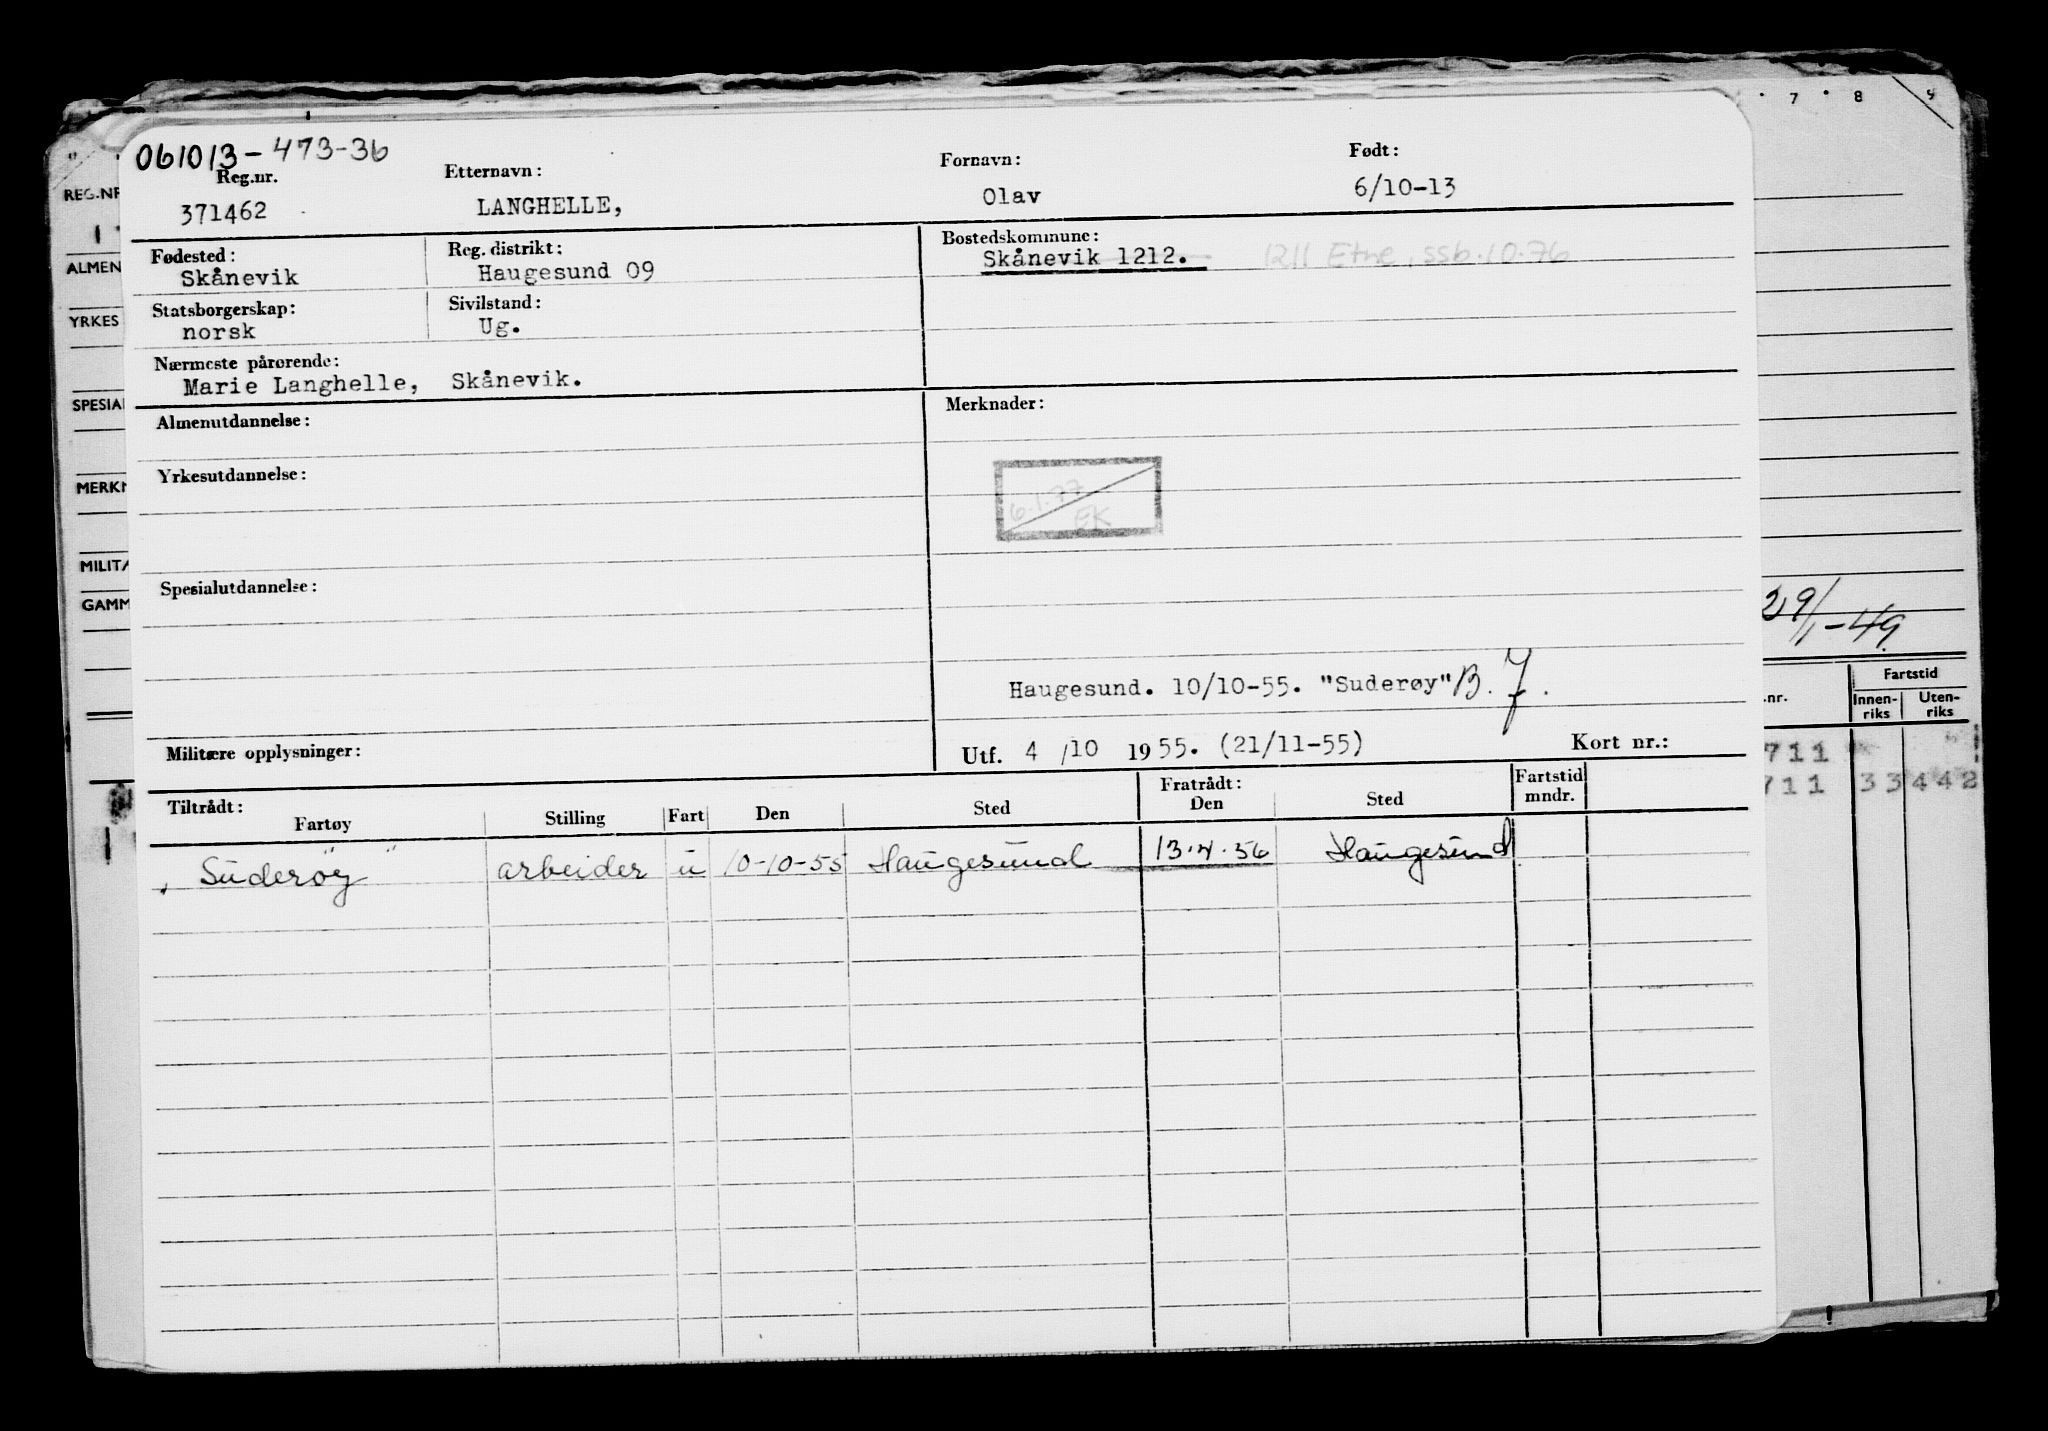 7 8 9
061013-473-36
Reg.nr. Etternavn: Fornavn: Født:
371462 LANGHELLE, Olav 6/10-13
Fødested: Reg. distrikt: Bostedskommune:
Skånevik Haugesund 09 Skånevik 1212. 1211 Etne, ssb.10.76
Statsborgerskap: Sivilstand:
norsk Ug.
Nærmeste pårørende:
Marie Langhelle, Skånevik.
Almenutdannelse: Merknader:
Yrkesutdannelse:
6.1.77
EK
Spesialutdannelse:
Haugesund. 10/10-55. "Suderøy" B. f.
Militære opplysninger: Utf. 4/10 1955. (21/11-55) Kort nr.:
Tiltrådt: Fratrådt: Fartstid
Fartøy Stilling Fart Den Sted Den Sted mndr.
"Suderøy" arbeider u 10-10-55 Haugesund 13.4.56 Haugesund
REG.NR
ALMEN
YRKES
SPESIAL
MERKN
MILITÆ
GAMM
29/1-49.
Fartstid
.nr. Innen-riks Uten-riks
711
711 33 442